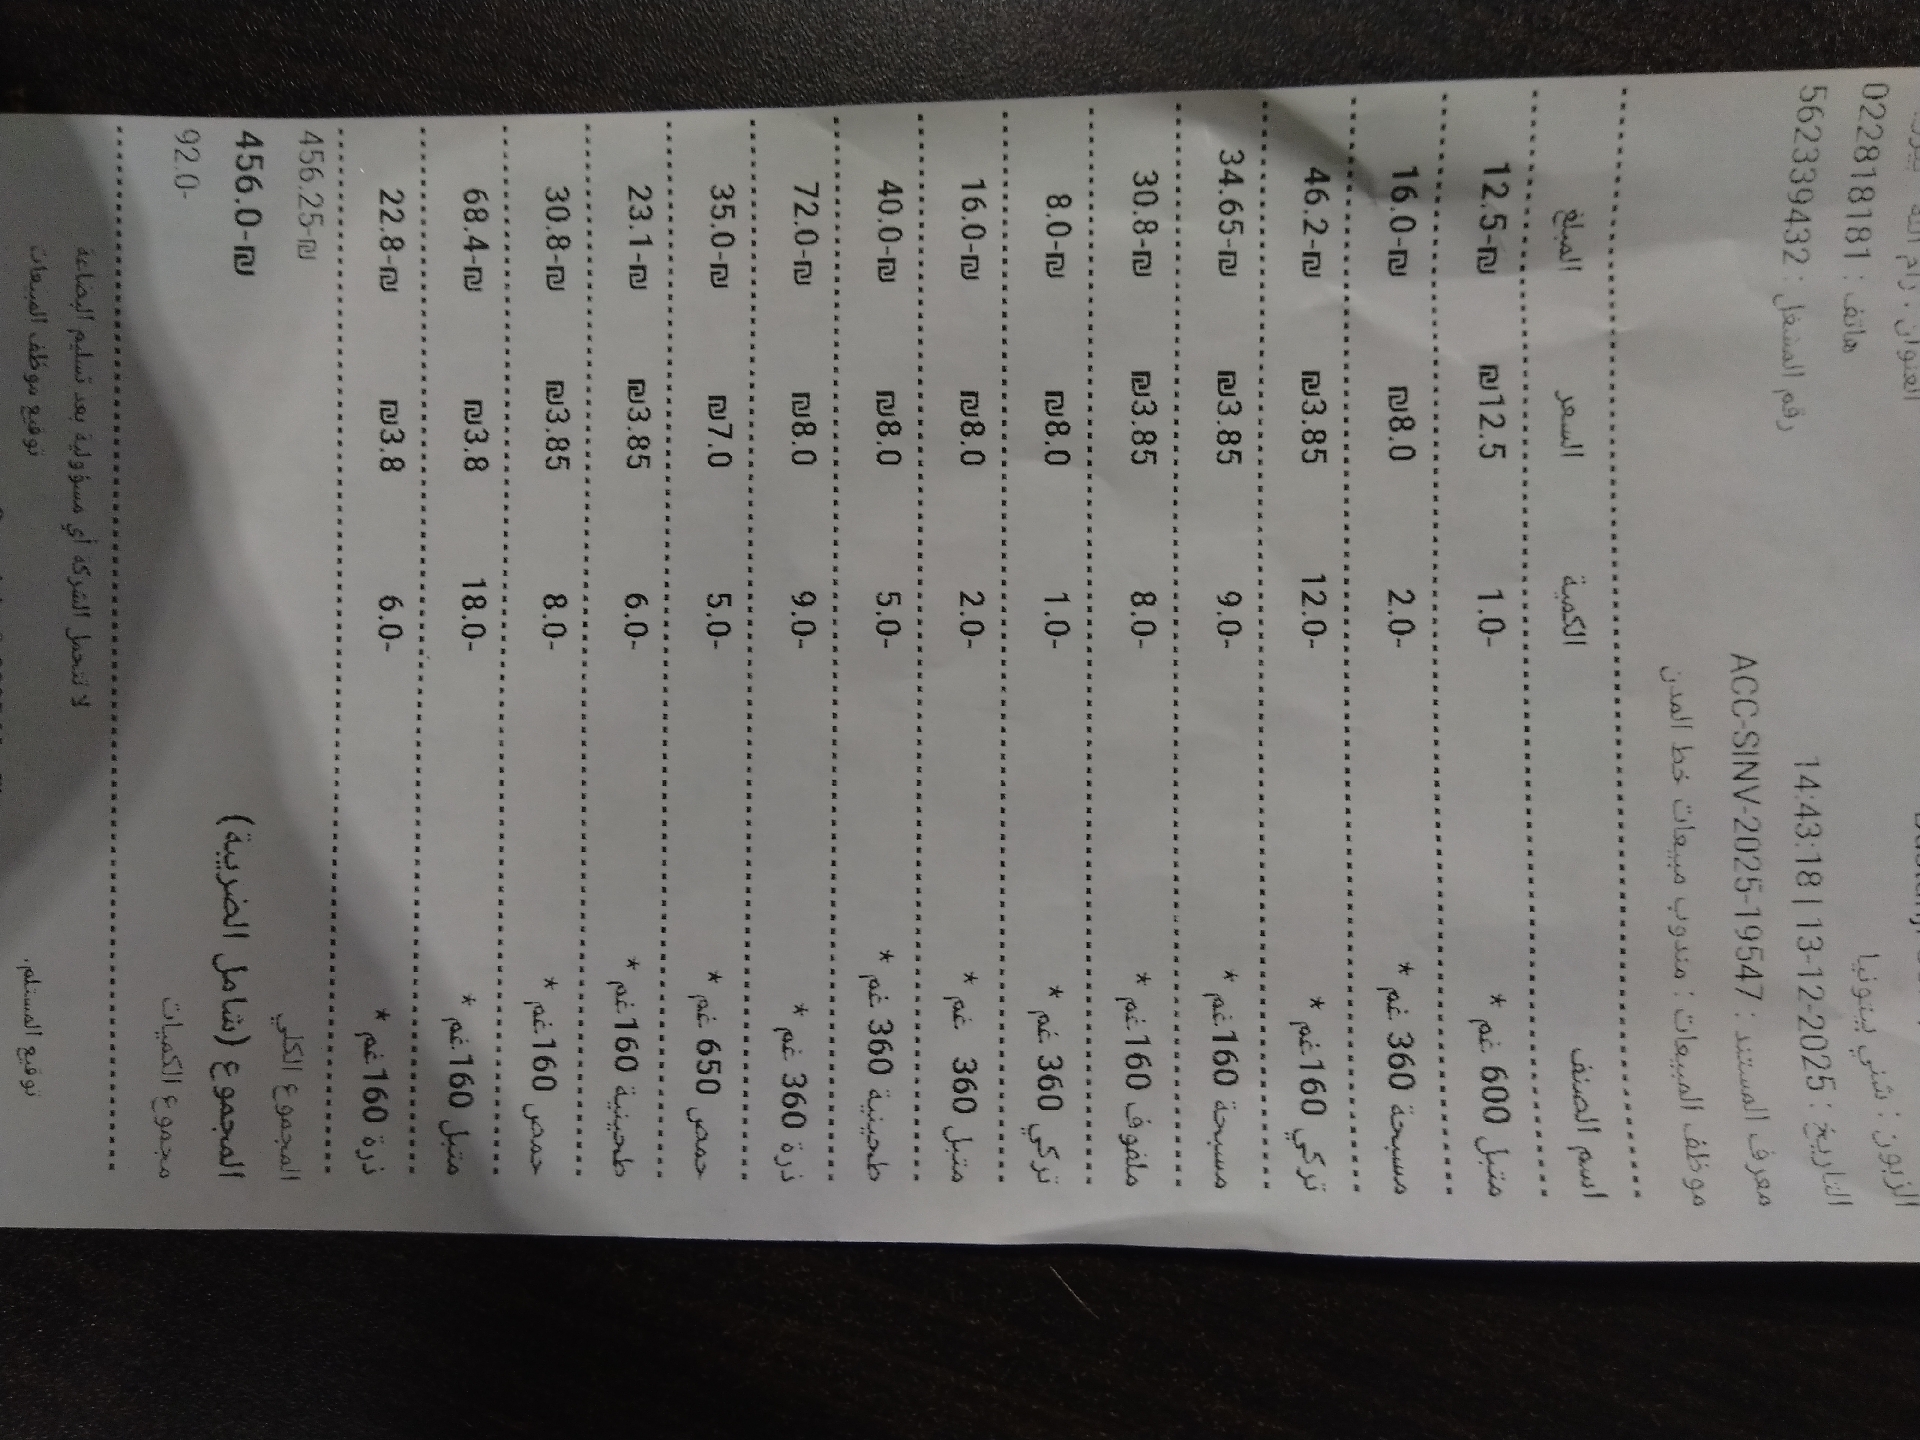 الزبون : شني بيتونيا
هاتف : 022818181
التاريخ : 2025-12-13 | 14:43:18
رقم المشغل : 562339432
معرف المستند : ACC-SINV-2025-19547
موظف المبيعات : مندوب مبيعات خط المدن
اسم الصنف الكمية السعر المبلغ
متبل 600 غم * 1.0- ₪12.5 12.5-₪
مسبحة 360 غم * 2.0- ₪8.0 16.0-₪
تركي 160غم * 12.0- ₪3.85 46.2-₪
مسبحة 160غم * 9.0- ₪3.85 34.65-₪
ملفوف 160غم * 8.0- ₪3.85 30.8-₪
تركي 360 غم * 1.0- ₪8.0 8.0-₪
متبل 360 غم * 2.0- ₪8.0 16.0-₪
طحينية 360 غم * 5.0- ₪8.0 40.0-₪
ذرة 360 غم * 9.0- ₪8.0 72.0-₪
حمص 650 غم * 5.0- ₪7.0 35.0-₪
طحينية 160غم * 6.0- ₪3.85 23.1-₪
حمص 160غم * 8.0- ₪3.85 30.8-₪
متبل 160غم * 18.0- ₪3.8 68.4-₪
ذرة 160غم * 6.0- ₪3.8 22.8-₪
المجموع الكلي 456.25-₪
المجموع (شامل الضريبة) 456.0-₪
مجموع الكميات 92.0-
لا تتحمل الشركة أي مسؤولية بعد تسليم البضاعة
توقيع المستلم. توقيع موظف المبيعات